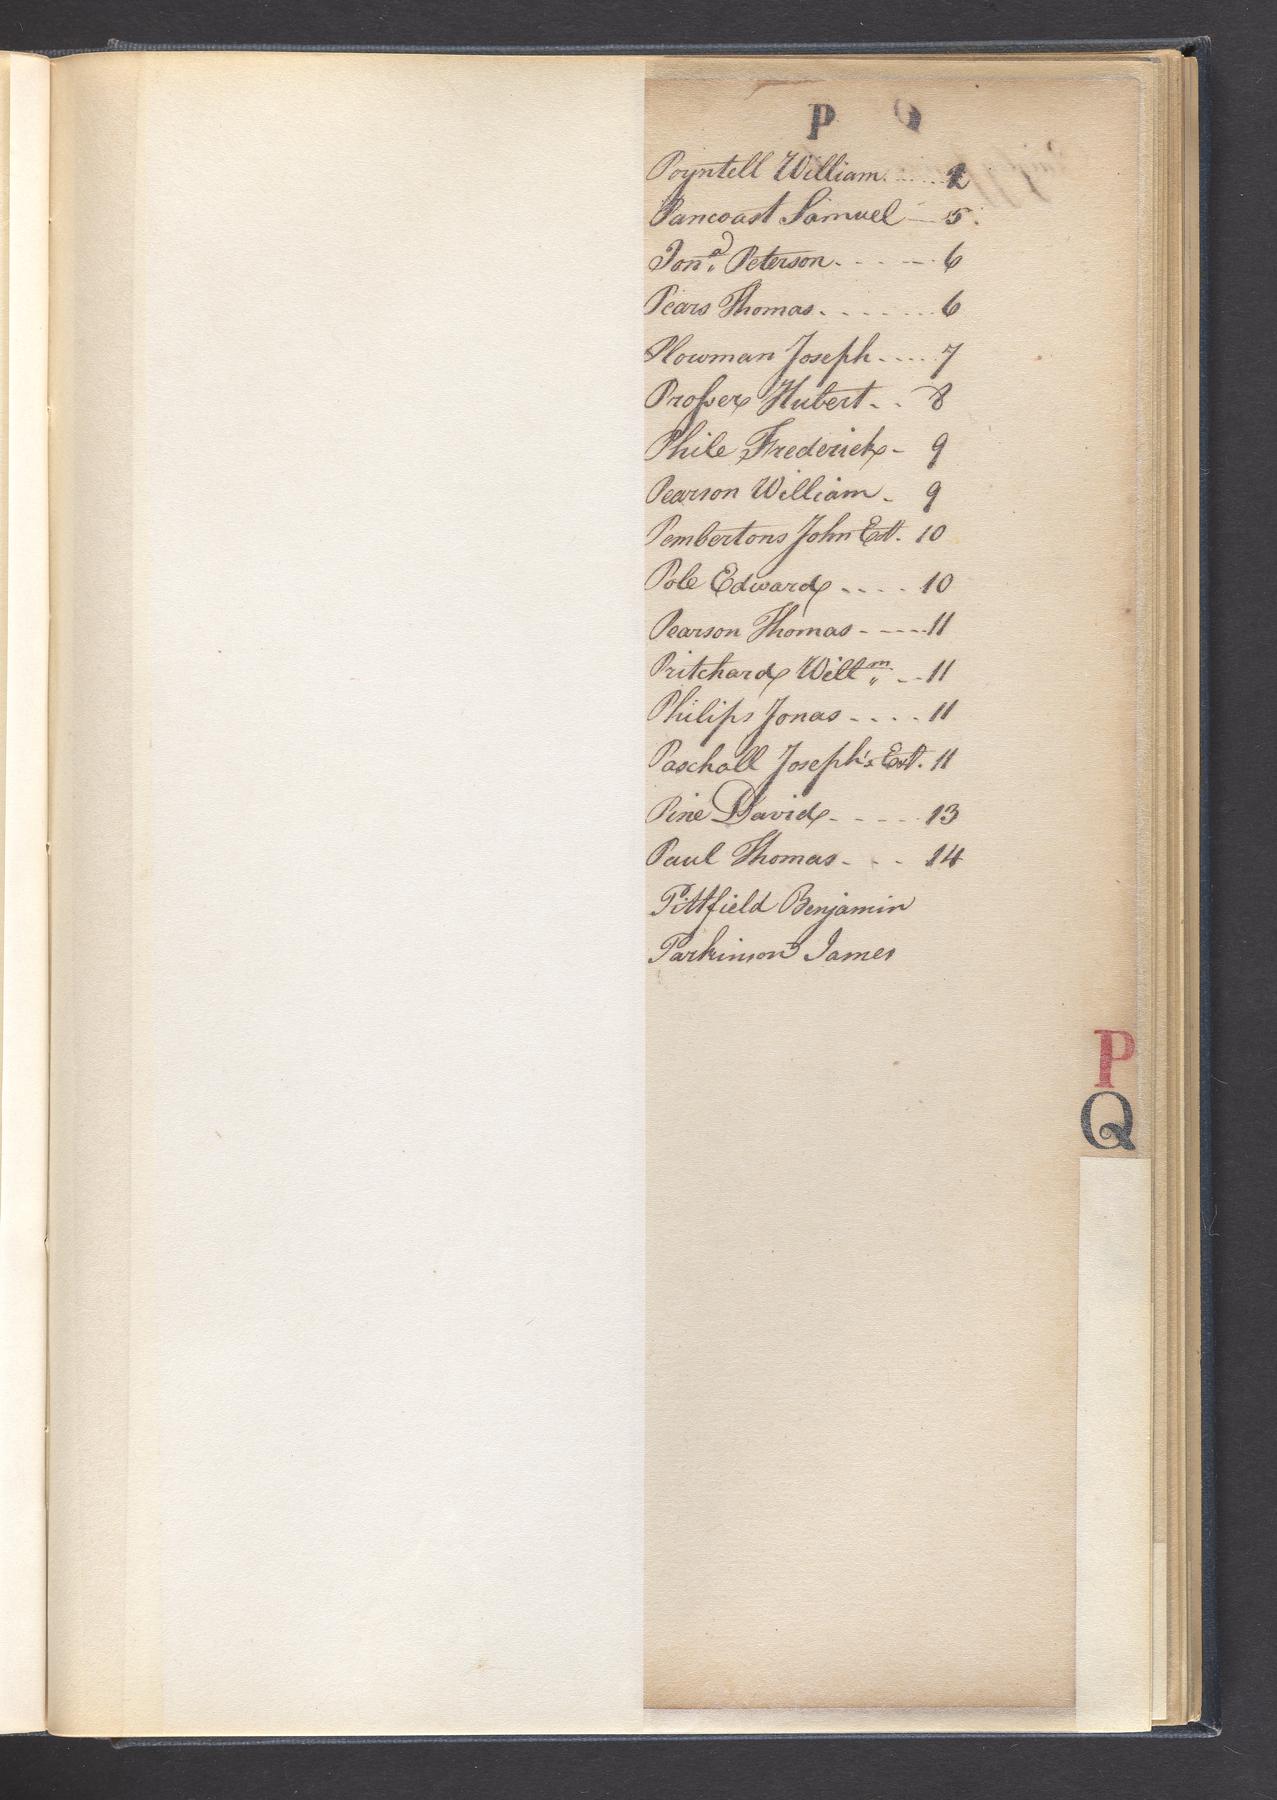 P Q
Poyntell William. .... 2
Pancoast Samuel — 5.
Jon.ª Peterson. - - - - - 6
Pears Thomas. . . . . . . . 6
Plowman Joseph. . . . . 7
Profser Hubert. . 8
Phile Frederick - 9
Pearson William. 9
Pembertons John Est. 10
Pole Edward . . . . 10
Pearson Thomas - - - - - 11
Pritchard Will.ᵐ . . 11
Philips Jonas . . . . 11
Paschall Joseph's Est. 11
Pine David - - - - - 13
Paul Thomas. - - 14
Pittfield Benjamin
Parkinson James
P
Q